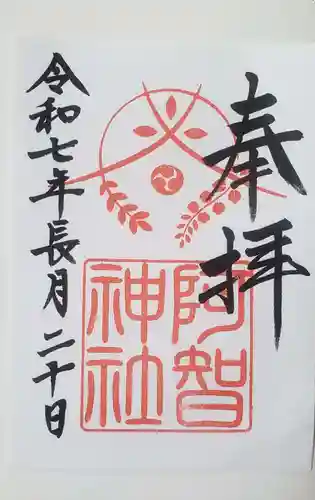 奉拝
阿智
神社
令和七年長月二十日